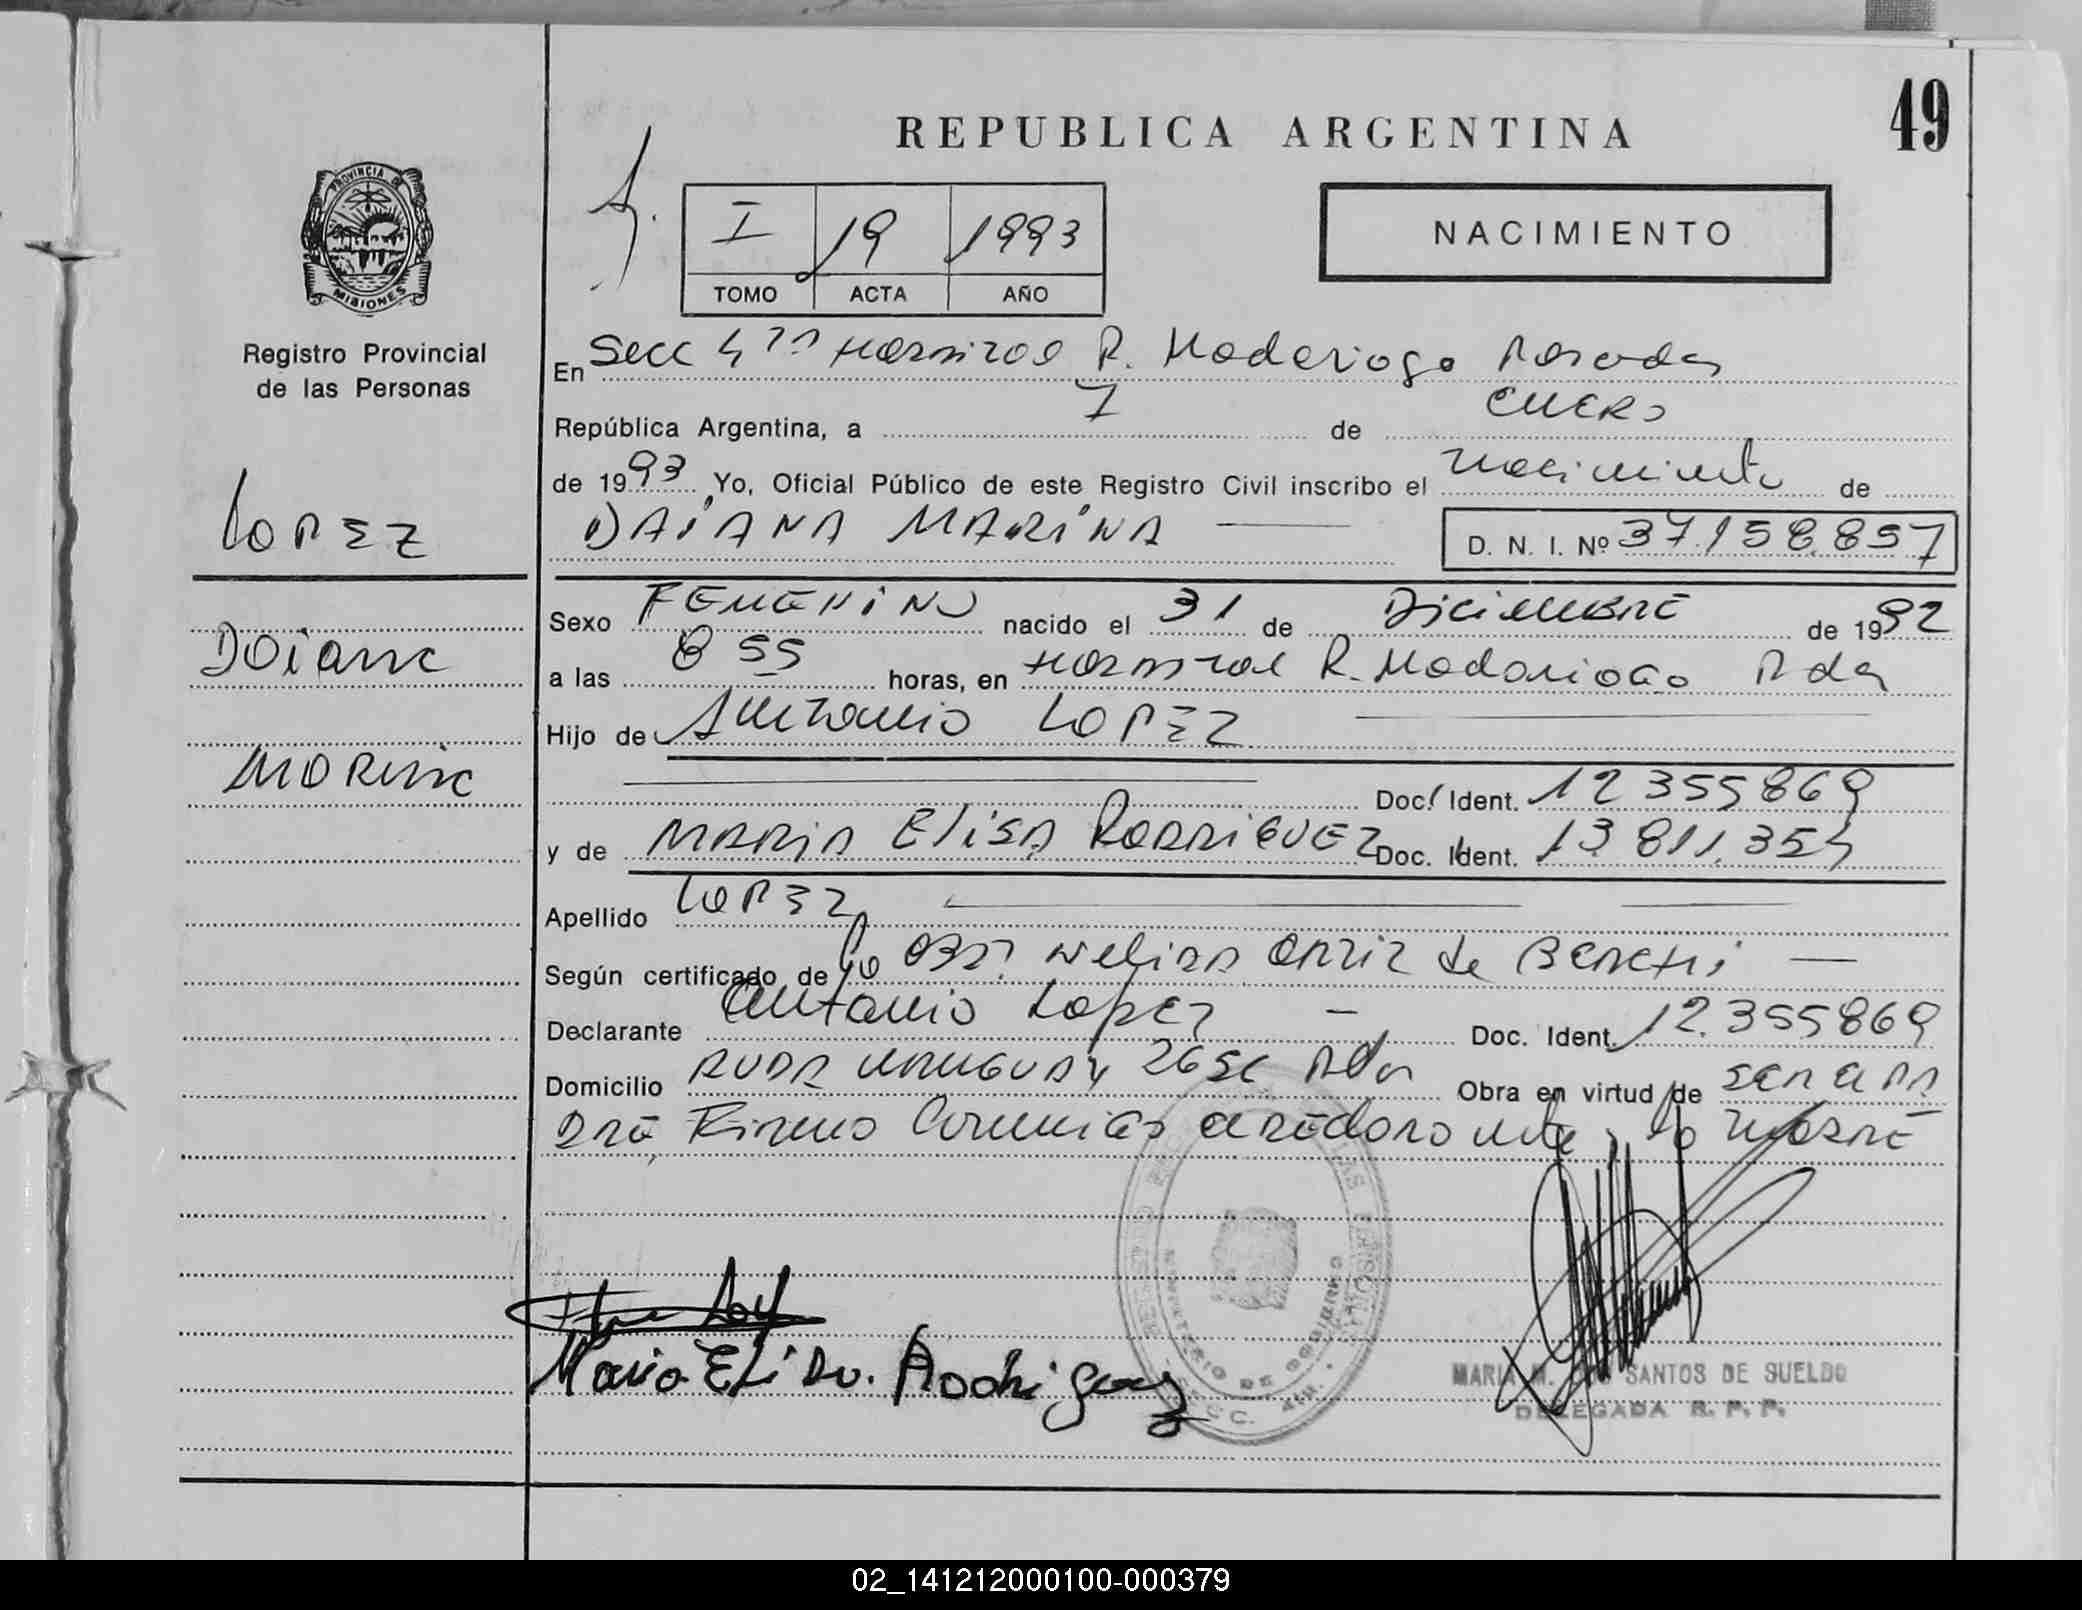 49
REPUBLICA ARGENTINA
PROVINCIA DE
MISIONES
Registro Provincial
de las Personas
I 19 1993
TOMO ACTA AÑO
NACIMIENTO
En Secc 4ta Hospital R. Madariaga Posadas
República Argentina, a 7 de ENERO
de 1993 Yo, Oficial Público de este Registro Civil inscribo el nacimiento de
DAIANA MARINA D. N. I. Nº 37.158.857
LOPEZ
Daiana
Marina
Sexo FEMENINO nacido el 31 de Diciembre de 1992
a las 8 55 horas, en Hospital R. Madariaga Pdas
Hijo de Antonio LOPEZ
Doc. Ident. 12 355 869
y de MARIA ELISA RODRIGUEZ Doc. Ident. 13.811.354
Apellido LOPEZ
Según certificado de la Obst. Nelida Ortiz de
Declarante Antonio Lopez Doc. Ident. 12.355869
Domicilio AVDA URUGUAY Pdas Obra en virtud de ser el pa
dre Firman Conmigo el declarante y la madre
Maria Elisa. Rodriguez
MINISTERIO DE GOBIERNO
MARIA M. SANTOS DE SUELDO
DELEGADA R. P. P.
02_141212000100-000379